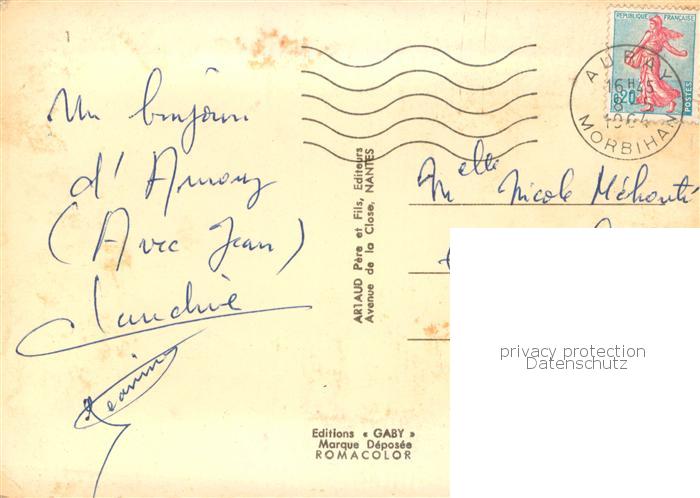 REPUBLIQUE FRANÇAISE
0,20
POSTES
AURAY
16H45
8-5
1964
MORBIHAN
Un bonjour
d'
(Avec Jean)
Claudine
Melle Nicole
ARTAUD Père et Fils, Editeurs
Avenue de la Close, NANTES
privacy protection
Datenschutz
Editions « GABY »
Marque Déposée
ROMACOLOR